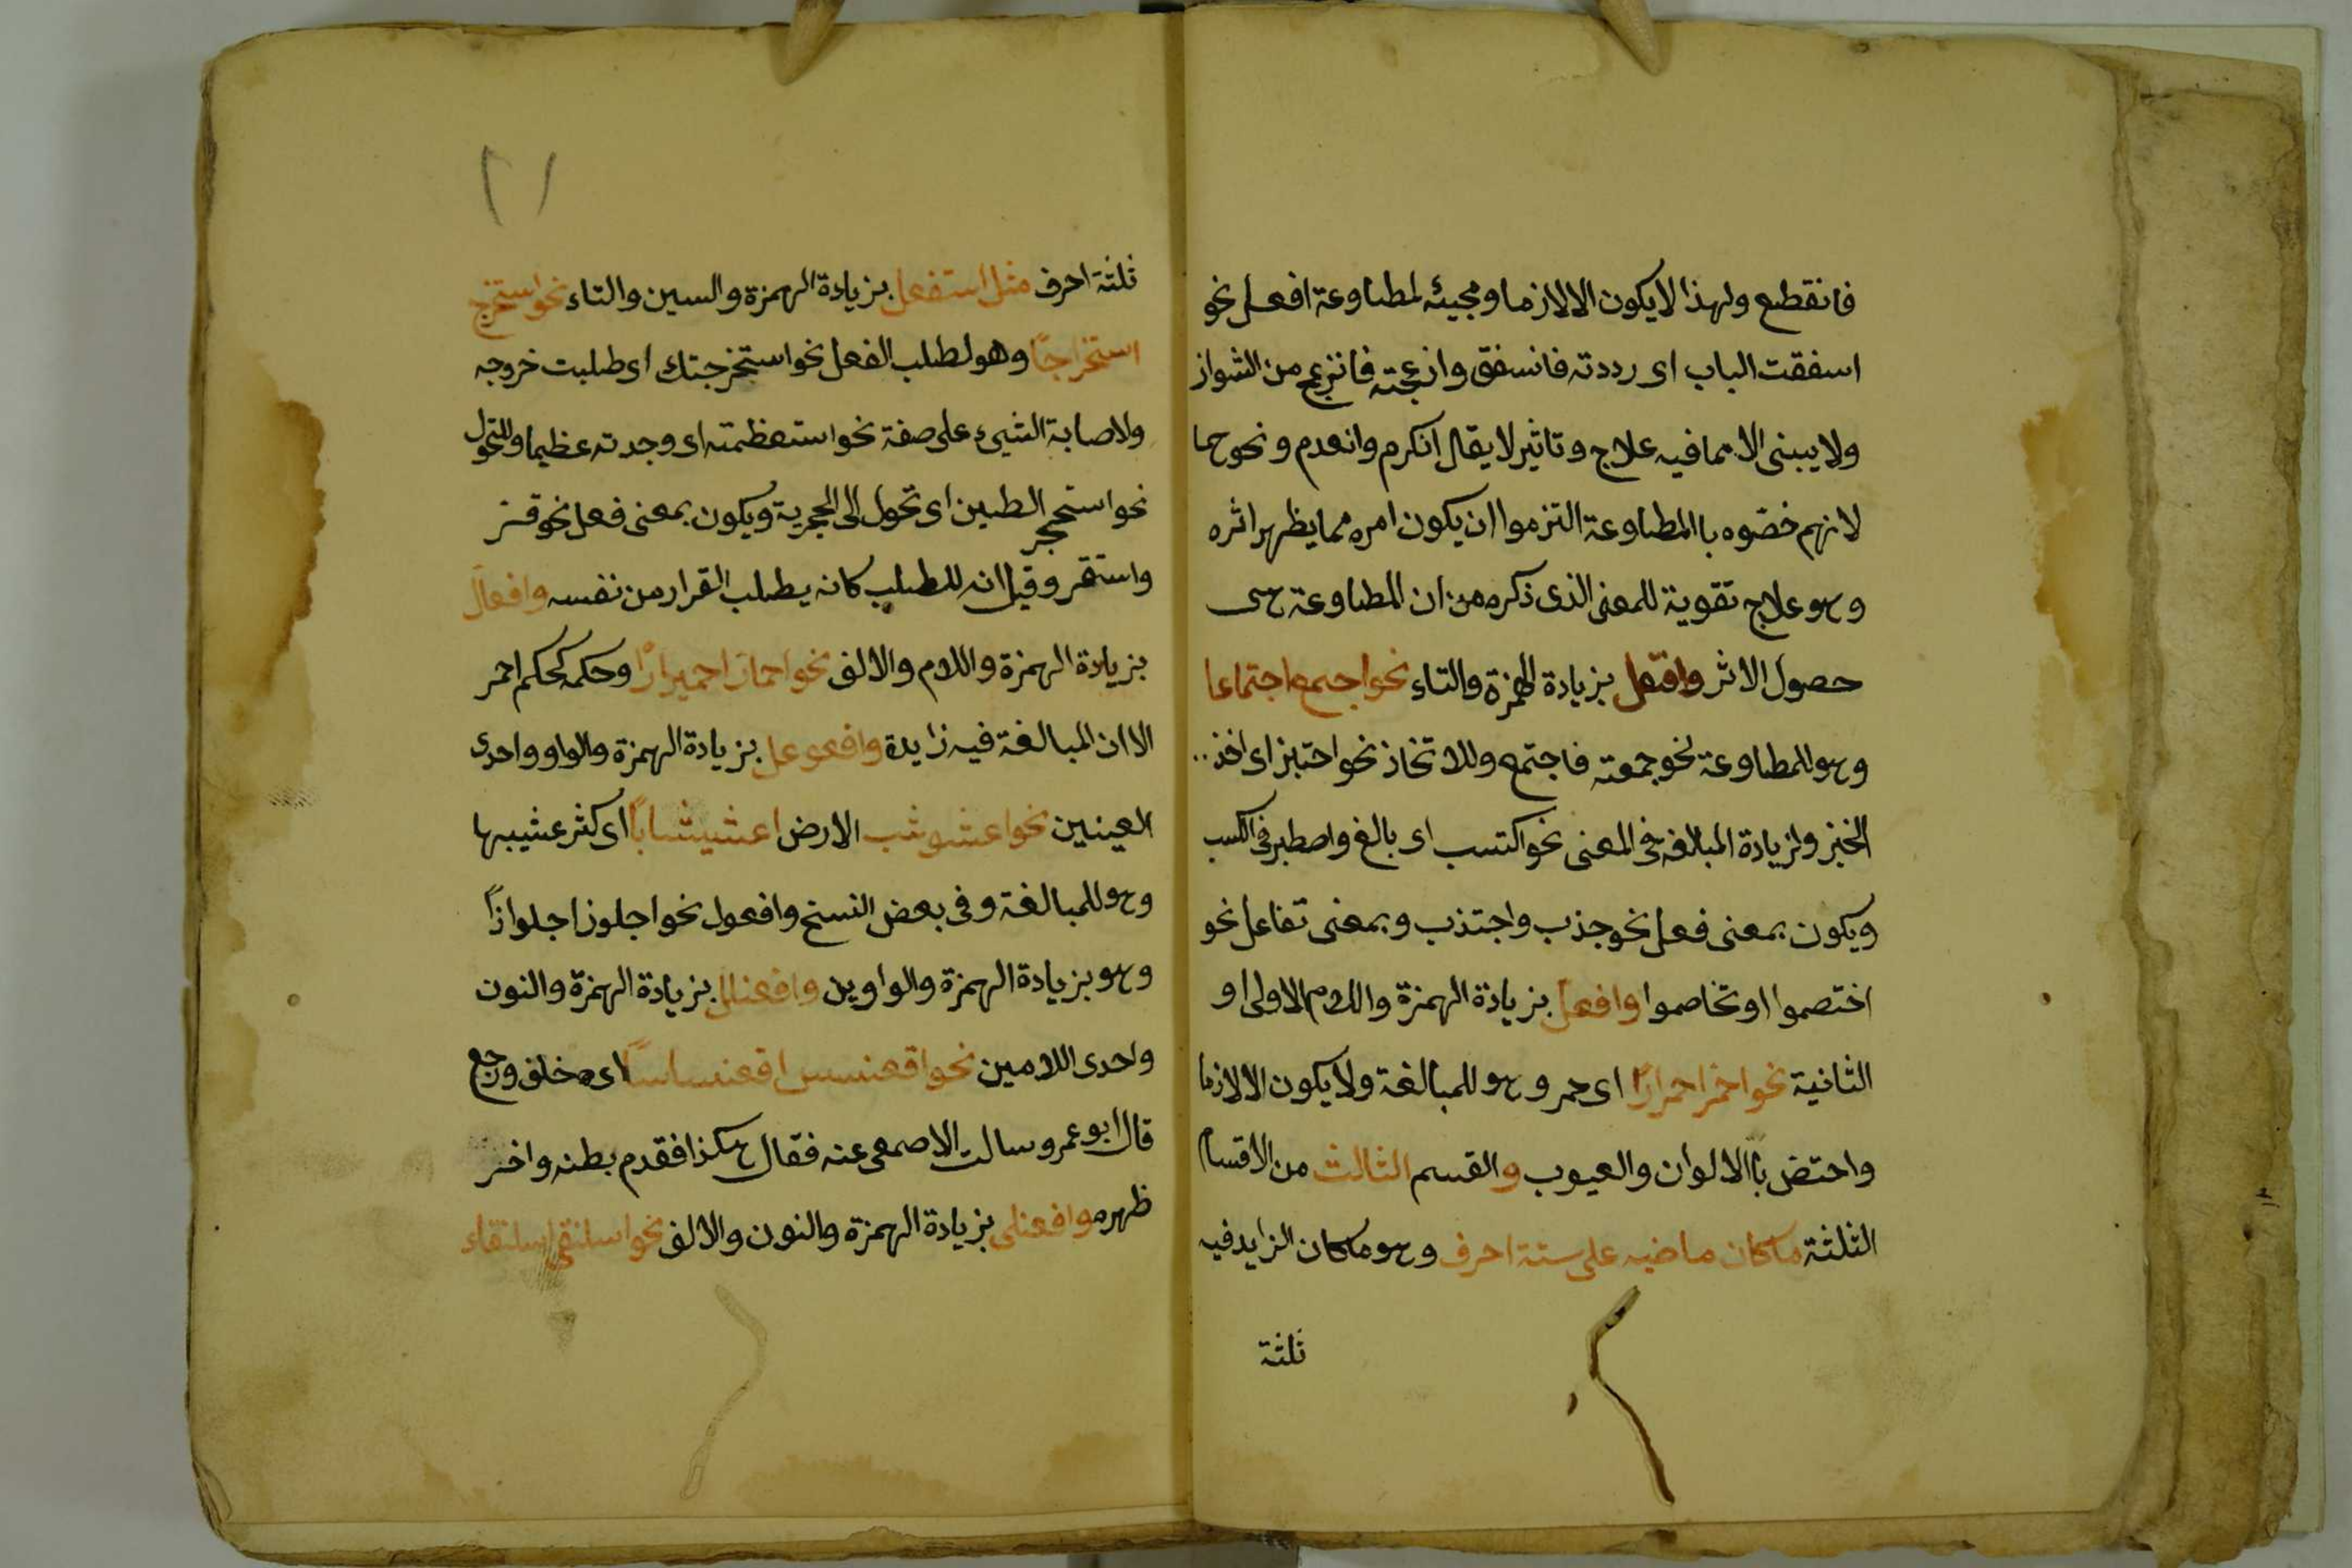 فانقطع ولهذا لا يكون الا لازما ومجيئه لمطاوعة افعل نحو
اسفقت الباب اى رددته فانسفق وازعجته فانزعج من الشواز
ولا يبنى الا مما فيه علاج وتاثير لا يقال انكرم وانعدم ونحوهما
لانهم خصّوه باالمطاوعة التزموا ان يكون امره مما يظهر اثره
وهو علاج تقوية للمعنى الذى ذكره من ان المطاوعة هى
حصول الاثر وافتعل بزيادة الهمزة والتاء نحو اجتمع اجتماعا
وهو للمطاوعة نحو جمعته فاجتمع وللاتخاذ نحو اختبز اى اخذ
الخبز ولزيادة المبالغة فى المعنى نحو اكتسب اى بالغ واضطبر فى الكسب
ويكون بمعنى فعل نحو جذب واجتذب وبمعنى تفاعل نحو
اختصموا او تخاصموا وافعل بزيادة الهمزة واللام الاولى او
الثانية نحو احمر احمرارًا اى حمر وهو للمبالغة ولا يكون الا لازما
واختص باالالوان والعيوب والقسم الثالث من الاقسام
الثلثة ما كان ماضيه على ستة احرف وهو ما كان الزايد فيه
ثلثة
٢١
ثلثة احرف مثل استفعل بزيادة الهمزة والسين والتاء نحو استخرج
استخراجًا وهو لطلب الفعل نحو استخرجتك اى طلبت خروجه
ولاصابة الشىء على صفة نحو استعظمته اى وجدته عظيما وللتحول
نحو استحجر الطين اى تحول الى الحجرية ويكون بمعنى فعل نحو قر
واستقر وقيل انه للطلب كانه يطلب القرار من نفسه وافعالّ
بزيادة الهمزة واللام والالف نحو احمارّ احميرارًا وحكمه كحكم احمر
الا ان المبالغة فيه زايدة وافعوعل بزيادة الهمزة والواو واحدى
العينين نحو اعشوشب الارض اعشيشابًا اى كثر عشيبها
وهو للمبالغة وفى بعض النسخ وافعول نحو اجلوز اجلوازًا
وهو بزيادة الهمزة والواوين وافعنلل بزيادة الهمزة والنون
واحدى اللامين نحو اقعنسس اقعنساسًا اى خلف ورجع
قال ابو عمرو سالت الاصمعى عنه فقال هكذا فقدم بطنه واخر
ظهره وافعنلى بزيادة الهمزة والنون والالف نحو اسلنقى اسلنقاء